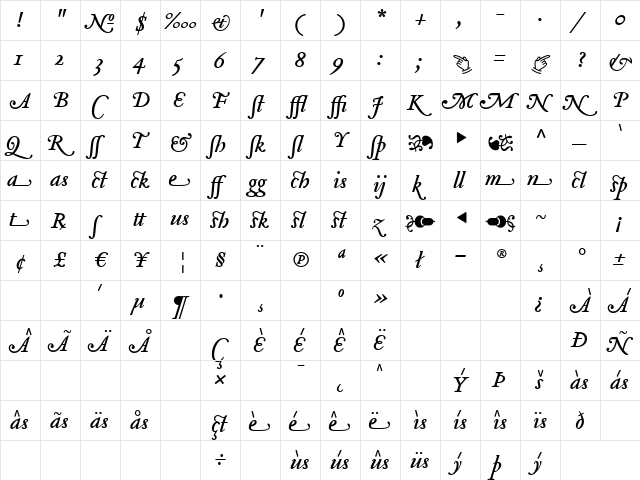 ! " № $ ‱ & ' ( ) * + , - . / 0
1 2 3 4 5 6 7 8 9 : ; = ? &
A B C D E F ſt ffl ffi J K M M N N P
Q R ſſ T & ſh ſk ſl Y ſp ^ _ `
a as ct ck e ff gg ch is ij k ll m n cl sp
t ß ſ tt us sh sk sl st z ~ ¡
¢ £ € ¥ ¦ § ¨ ℗ ª « ł - ® ¸ ° ±
´ µ ¶ · ¸ º » ¿ À Á
 à Ä Å Ç È É Ê Ë Ð Ñ
× ¯ ˆ Ý Þ š às ás
âs ãs äs ås çt è é ê ë ìs ís îs ïs ð
÷ ùs ús ûs üs ý þ ý